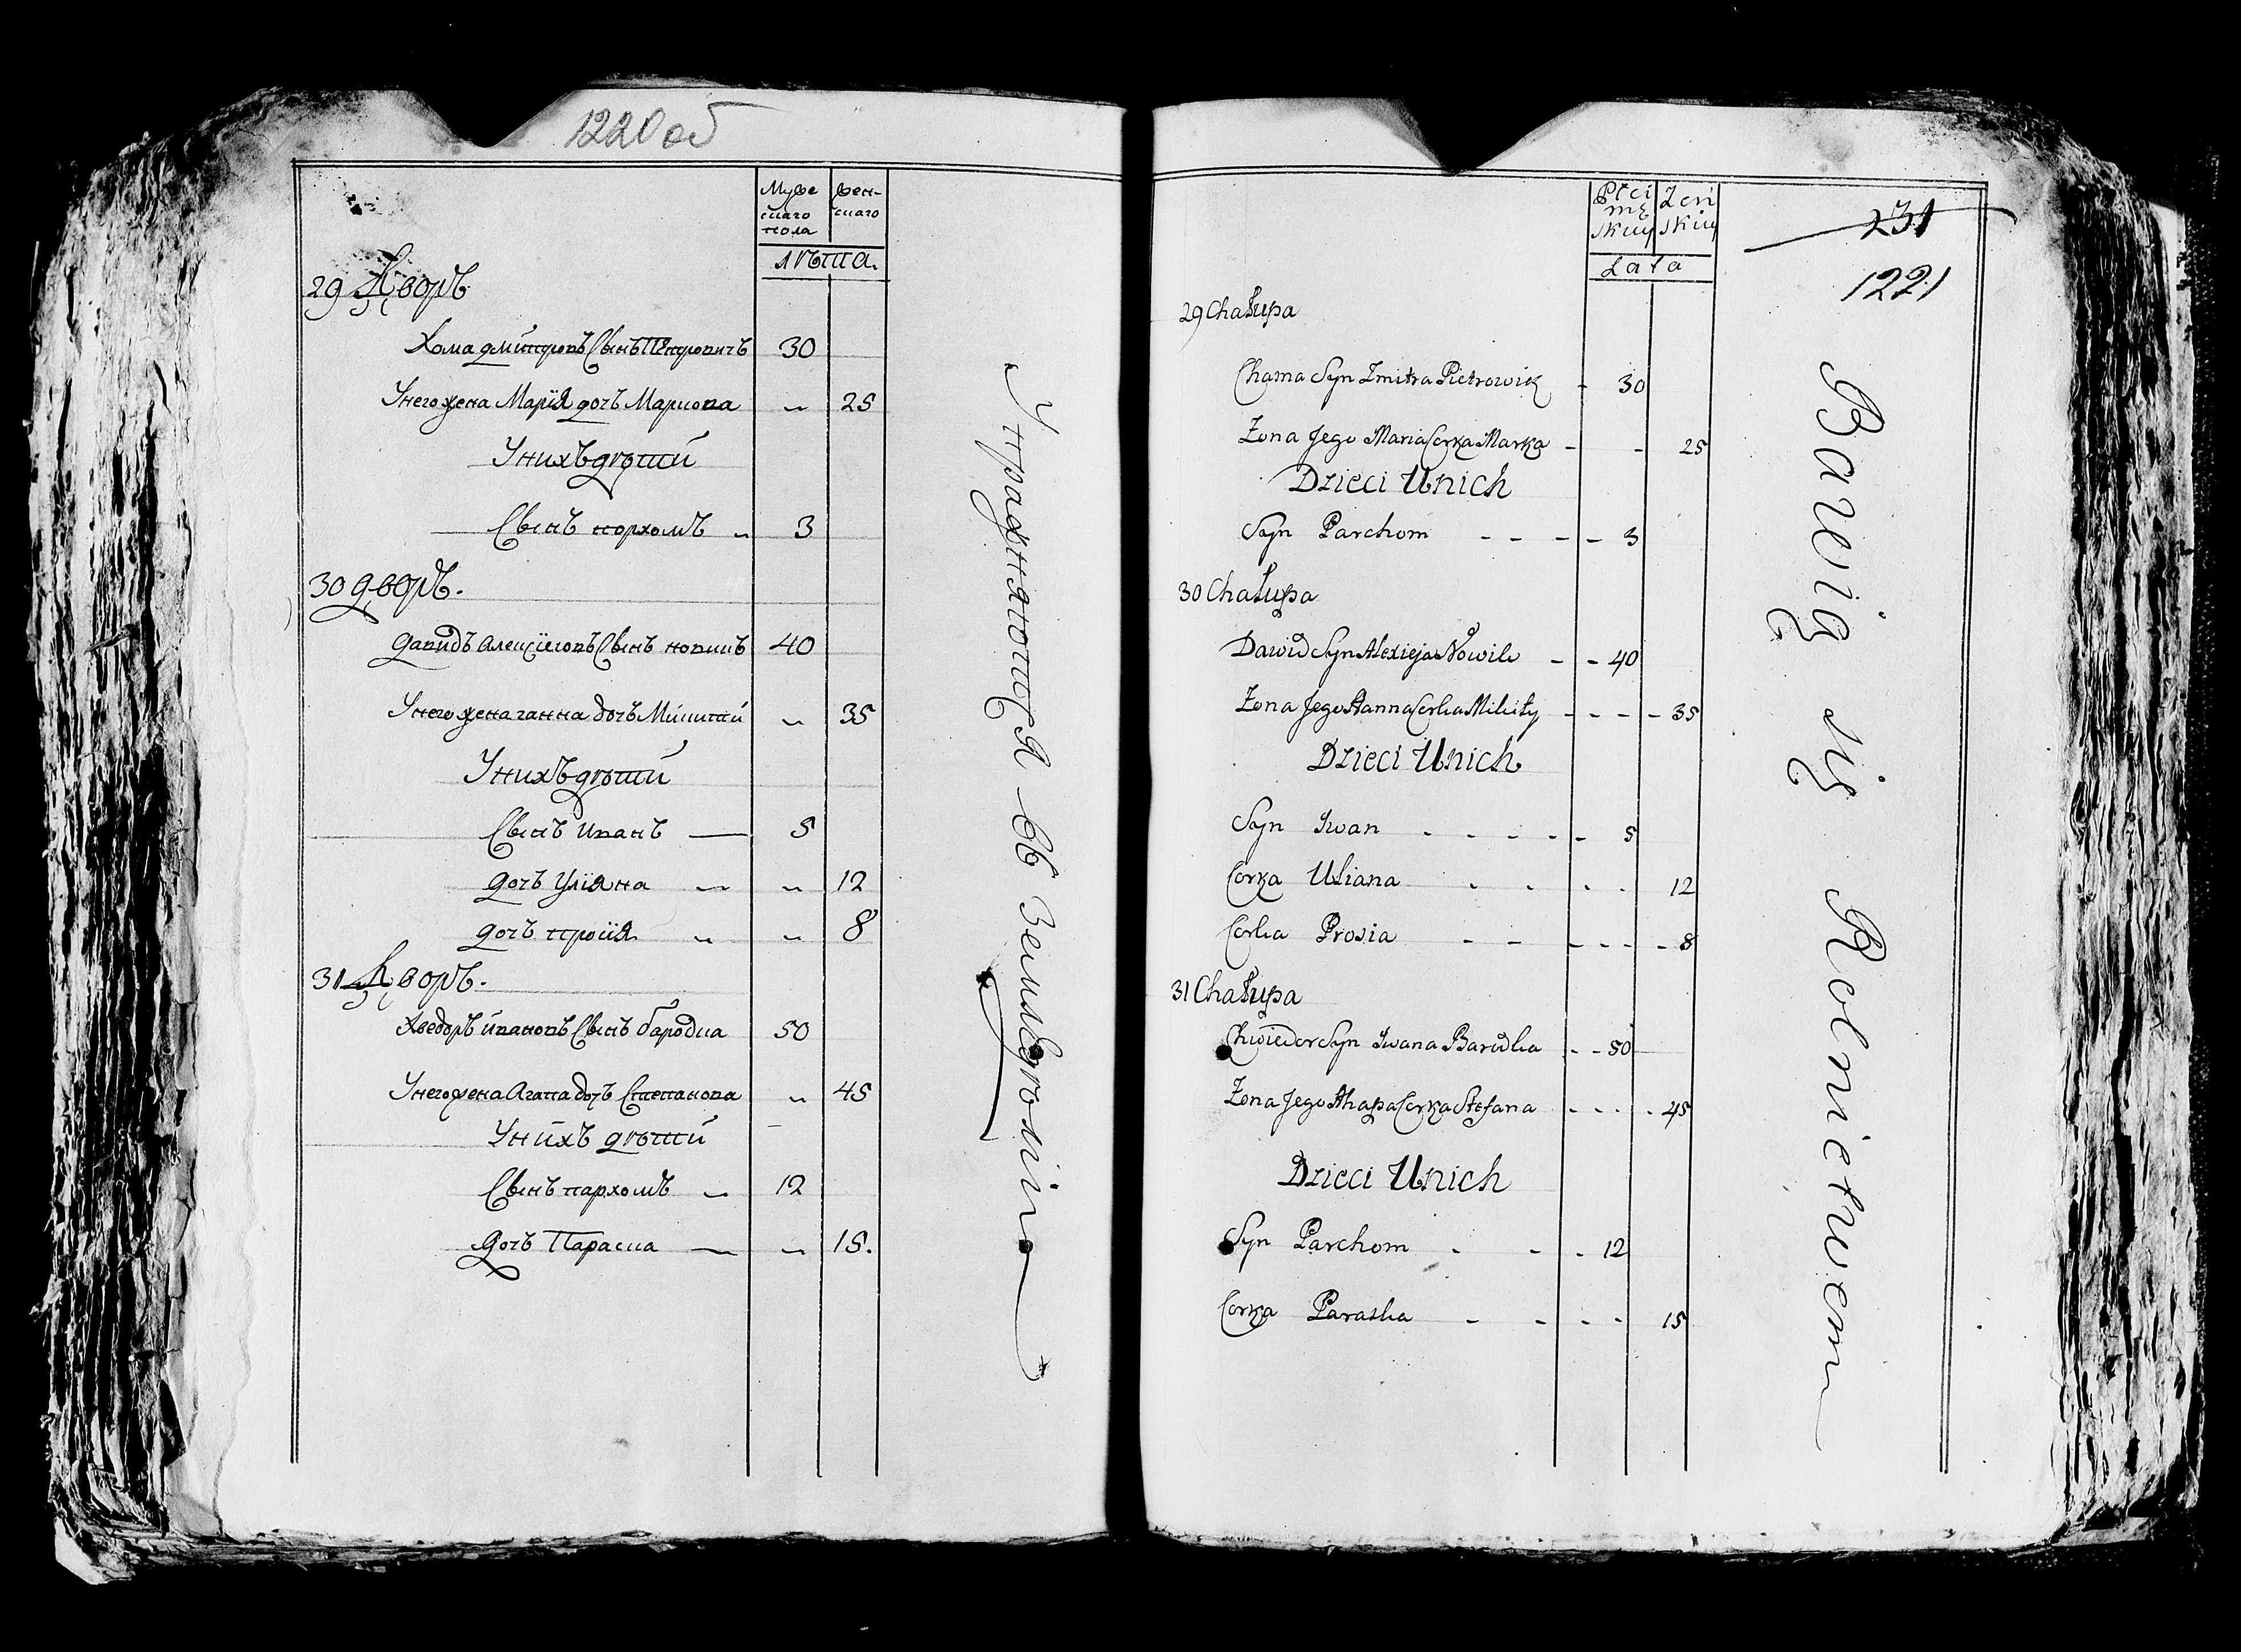 1220 об
Муже
скаго
пола
жен-
скаго
лѣта.
29 Дворъ
Хома дмитровъ Сынъ Петровичъ 30
У него жена Марія дочъ Маркова „ 25
У нихъ дѣти
Сынъ порхомъ „ 3
30 дворъ.
давидъ Алексіевъ Сынъ новикъ 40
У него жена ганна дочъ Микити „ 35
У нихъ дѣти
Сынъ Иванъ 5
дочъ Уліяна „ „ 12
дочъ прося „ „ 8
31 Дворъ.
Хведоръ ивановъ Сынъ бародка 50
У него жена Агапа дочъ Степанова „ 45
У нихъ дѣти
Сынъ пархомъ „ 12
дочъ Параска „ 15.
Упражняются въ
Ptci
mę
skiey
Zeń
skiey
Lata
231
1221
29 Chałupa
Chama Syn Zmitra Pietrowik - 30
Żona Jego Maria Corka Marka - - 25
Dzieci Unich
Syn Parchom - - - - 3
30 Chałupa
Dawid Syn Alexieja Nowik - - 40
Żona Jego Hanna Corka Mikity - - - - 35
Dzieci Unich
Syn Iwan - - - - - 5
Corka Uliana - - - - 12
Corka Prosia - - - - - - 8
31 Chałupa
Chwiedor Syn Iwana Barodka - - 50
Żona Jego Ahapa Corka Stefana - - - - 45
Dzieci Unich
Syn Parchom - - - 12
Corka Paraska - - - - 15
Bawią się Rolnictwem